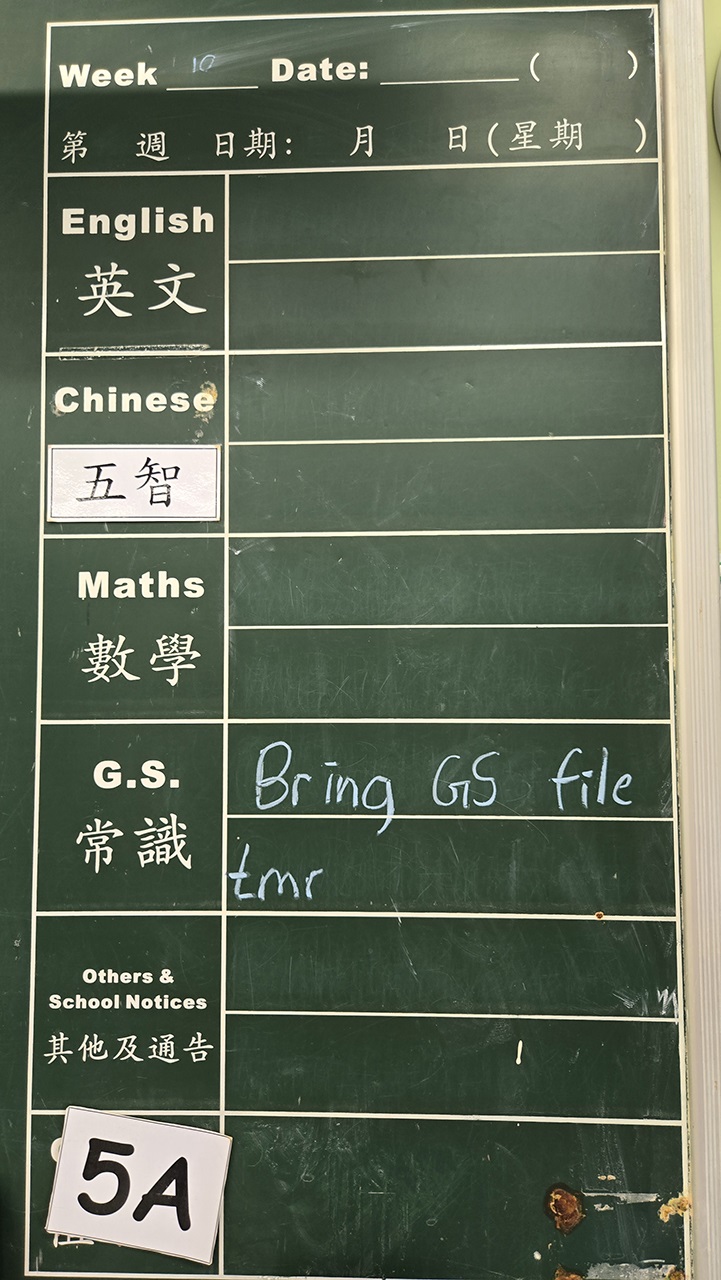 Week 10 Date: ( )
第 週 日期: 月 日(星期 )
English
英文
Chinese
五智
Maths
數學
G.S.
常識
Bring GS file
tmr
Others &
School Notices
其他及通告
5A